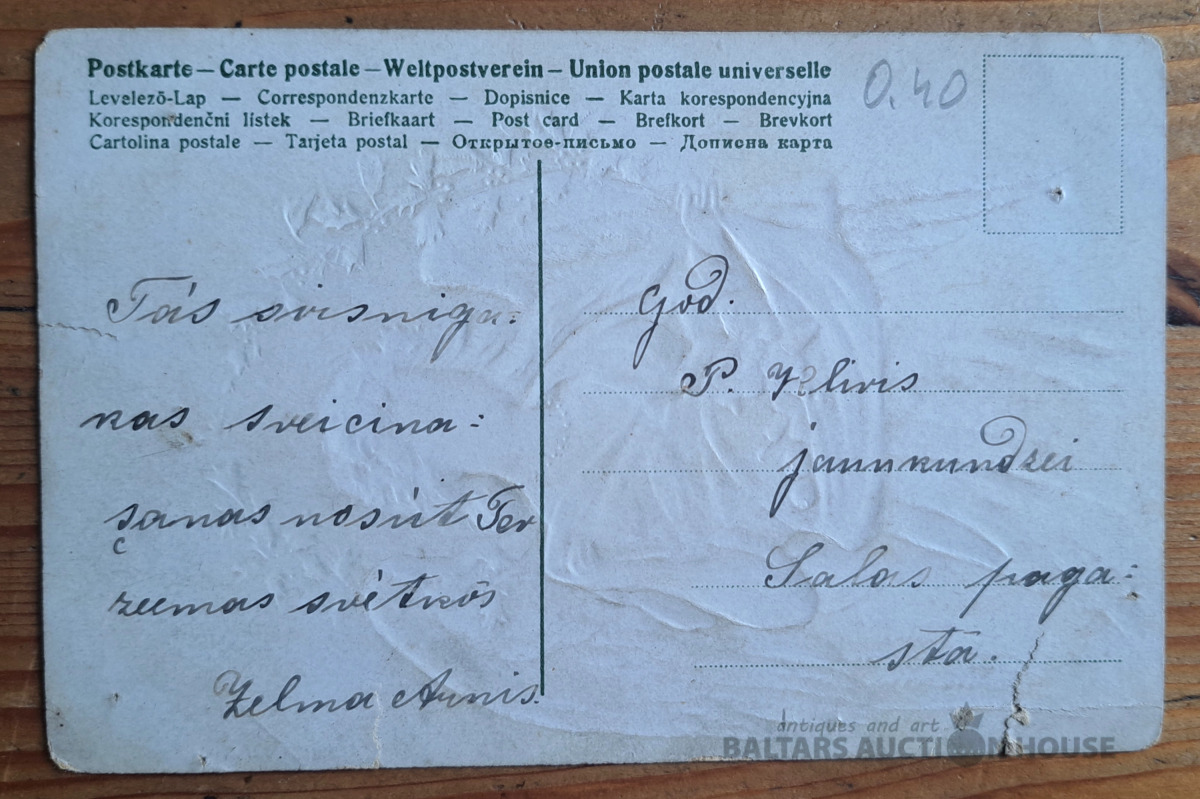 Postkarte — Carte postale — Weltpostverein — Union postale universelle
Levelezõ-Lap — Correspondenzkarte — Dopisnice — Karta korespondencyjna
Korespondenčni listek — Briefkaart — Post card — Brefkort — Brevkort
Cartolina postale — Tarjeta postal — Открытое-письмо — Дописна карта
0.40
Tás sirsniga:
kas sveicina:
şanas nosút Tev
zeemas svétkos
Zelma
God.
P.
jaunkundzei
Salas paga:
stā.
antiques and art
BALTARS AUCTION HOUSE